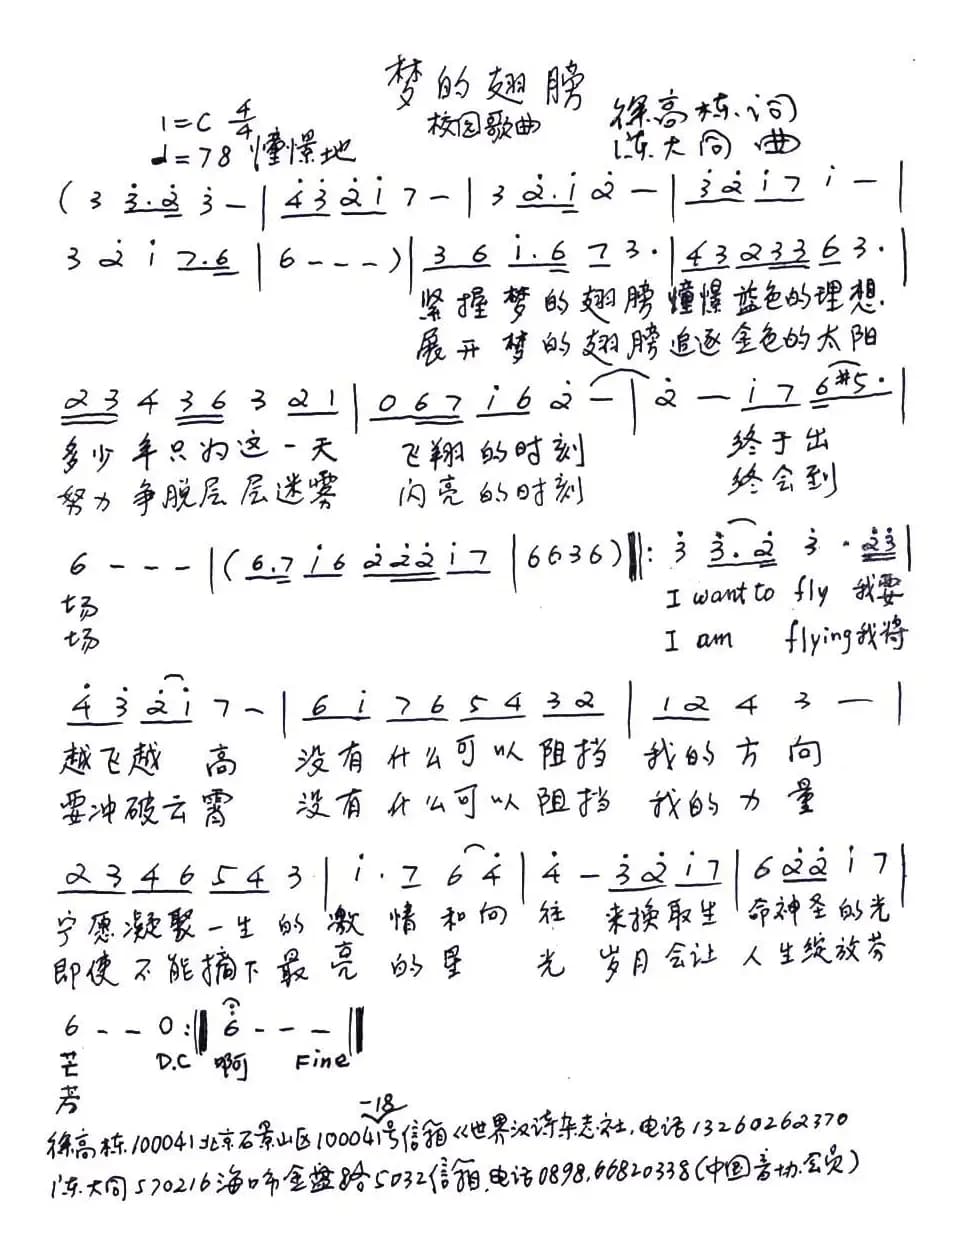 梦的翅膀
校园歌曲
1=C 4/4
♩=78 憧憬地
徐高栋词
陈大同 曲
(3 3̇.2̇ 3̇ - | 4̇3̇ 2̇1̇ 7 - | 3 2̇.1̇ 2̇ - | 3̇2̇ 1̇7 1̇ - |
3 2̇ 1̇ 7.6 | 6 - - - ) | 3 6 1̇.6 7 3. | 43 2336 3. |
紧握梦的翅膀憧憬蓝色的理想.
展开梦的翅膀追逐金色的太阳
23 4 36 3 21 | 0 67 1̇6 2̇ - | 2̇ - 1̇7 6#5. |
多少年只为这一天 飞翔的时刻 终于出
努力争脱层层迷雾 闪亮的时刻 终会到
6 - - - | (6.7 1̇6 2̇2̇2̇ 1̇7 | 6636) ‖: 3̇ 3̇.2̇ 3̇ . 2̇3̇ |
场 I want to fly 我要
场 I am flying我将
4̇3̇ 2̇1̇ 7 - | 61̇ 76 54 32 | 12 4 3 - |
越飞越高 没有什么可以阻挡 我的方向
要冲破云霄 没有什么可以阻挡 我的力量
23 46 54 3 | 1̇. 7 6 4̇ | 4̇ - 3̇2̇ 1̇7 | 6 2̇2̇ 1̇ 7 |
宁愿凝聚一生的激情和向往 来换取生命神圣的光
即使不能摘下最亮的星光 岁月会让人生绽放芬
6 - - 0 :‖ 6̇ - - - ‖
芒 D.C 啊 Fine
芳
-18
徐高栋.100041北京石景山区100041号信箱《世界汉诗杂志社.电话13260262370
陈大同570216海口市金盘8合5032信箱.电话0898.66820338(中国音协.会员)